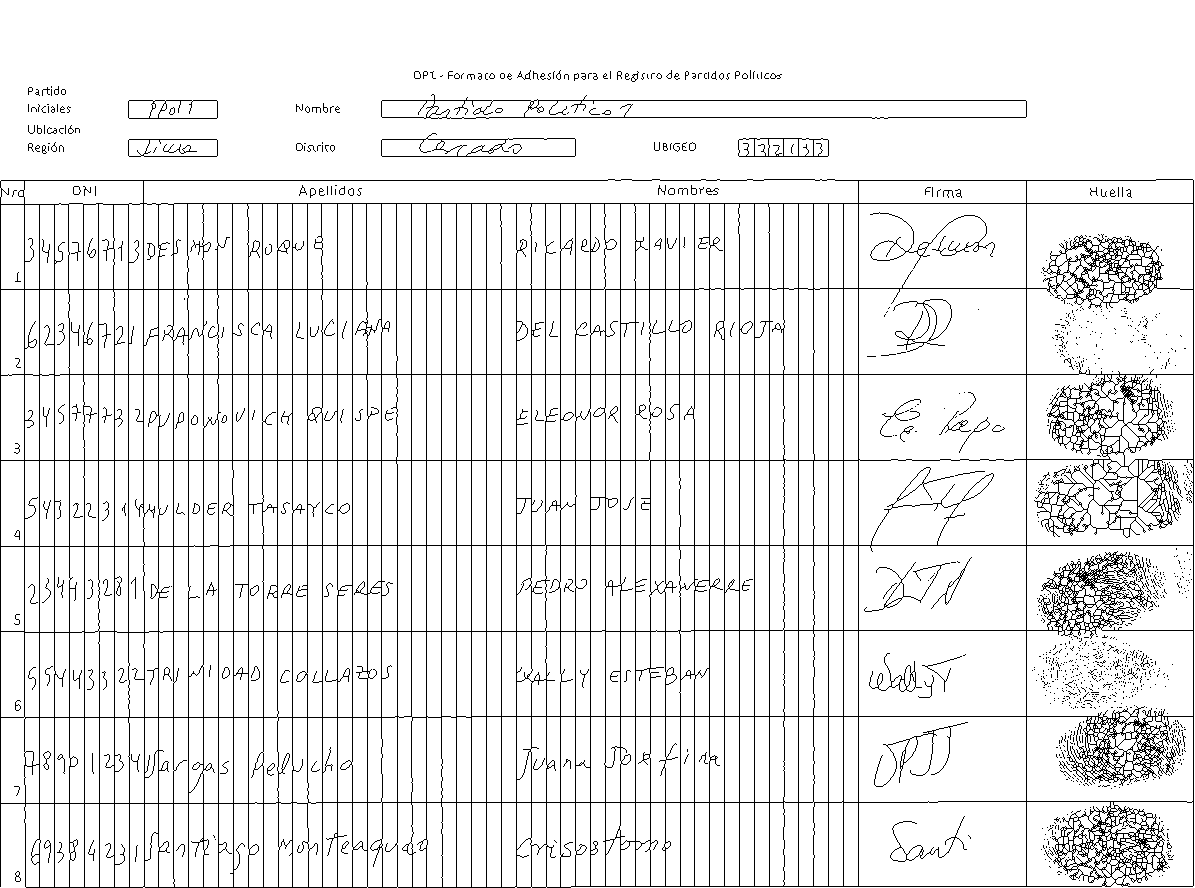 OP2 - Formato de Adhesión para el Registro de Partidos Políticos
Partido
Iniciales PPol1 Nombre Partido Politico 1
Ubicación
Región Lima Distrito Cercado UBIGEO 332133
Nro DNI Apellidos Nombres Firma Huella
1 34576713 DESMON ROQUE RICARDO XAVIER
2 62346721 FRANCISCA LUCIANA DEL CASTILLO RIOJA
3 34577732 PUPONOVICH QUISPE ELEONOR ROSA
4 54322314 MULDER TASAYCO JUAN JOSE
5 23443281 DE LA TORRE SERES PEDRO
6 55443322 TRINIDAD COLLAZOS WALLY ESTEBAN WallyT
7 78901234 Vargas Pelucho Juana Josefina
8 69384231 Santiago Monteagudo Crisostomo Santi